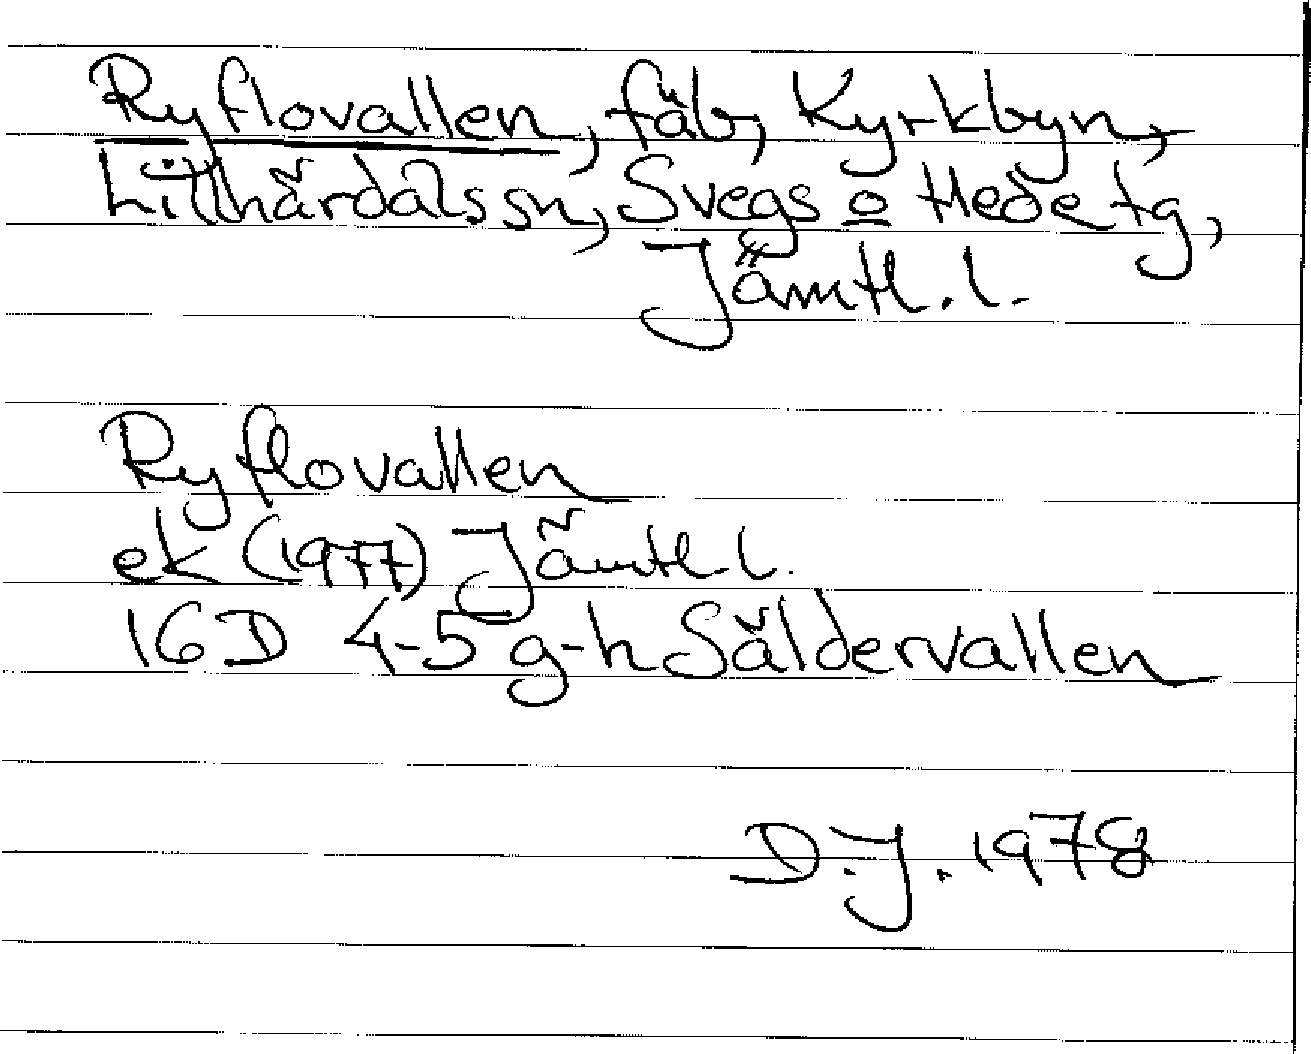 Ryflovallen, fäb, Kyrkbyn,
Lillhärdals sn, Svegs o Hede tg,
Jämtl. l.
Ryflovallen
ek (1977) Jämtl l.
16D 4-5 g-h Såldervallen
D.J. 1978